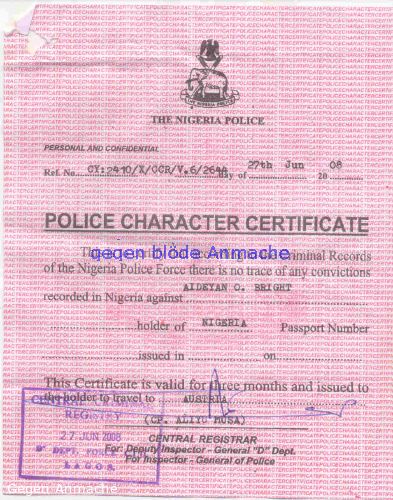 THE NIGERIA POLICE
PERSONAL AND CONFIDENTIAL
Ref. No. CY:2410/X/CCR/V.6/264 day of 27th Jun 20 08
POLICE CHARACTER CERTIFICATE
gegen blöde Anmache
Criminal Records
of the Nigeria Police Force there is no trace of any convictions
AIDEYAN O. BRIGHT
recorded in Nigeria against
holder of NIGERIA Passport Number
issued in on
This Certificate is valid for three months and issued to
the holder to travel to AUSTRIA
(CP. ALIYU MUSA)
CENTRAL REGISTRAR
For: Deputy Inspector - General "D" Dept.
For Inspector - General of Police
CENTRAL
REGISTRY
27 JUN 2008
"D" DEPT. FORCE
LAGOS.
gegen blöde Anmache